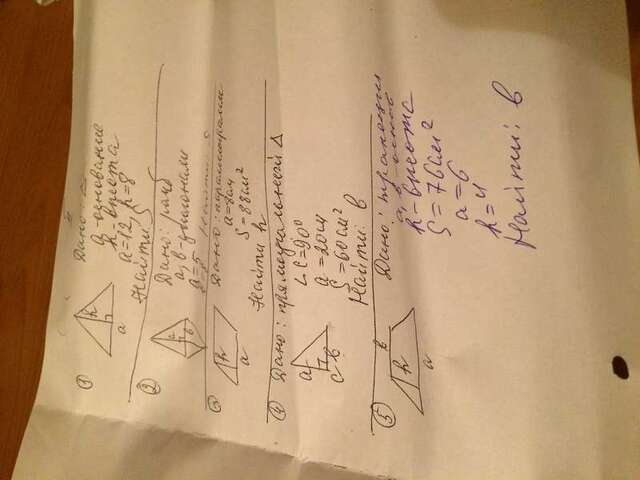 ① Дано: Δ
a-основание
h-высота
a=12, h=8
Найти S
h
a
② Дано: ромб
a, в-диагонали
a=5
Найти:
a
в
③ Дано: параллелограмм
a=8см
S=88см²
Найти h
h
a
④ Дано: прямоугольный Δ
∠C=90°
a=20см
S=60см²
Найти: в
a
C в
⑤ Дано: трапеция
a, в-основ
h-высота
S=76см²
a=6
h=4
Найти: в
в
h
a